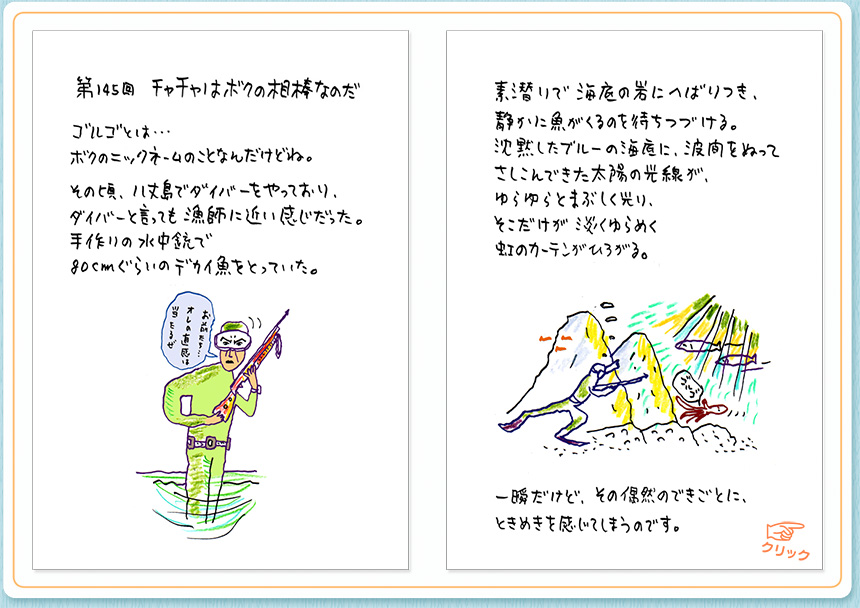 第145回 チャチャはボクの相棒なのだ
ゴルゴとは…
ボクのニックネームのことなんだけどね。
その頃、八丈島でダイバーをやっており、
ダイバーと言っても漁師に近い感じだった。
手作りの水中銃で
80cmぐらいのデカイ魚をとっていた。
お前たち…
オレの直感は
当たるぜ
素潜りで海底の岩にへばりつき、
静かに魚がくるのを待ちつづける。
沈黙したブルーの海底に、波間をぬって
さしこんできた太陽の光線が、
ゆらゆらとまぶしく光り、
そこだけが淡くゆらめく
虹のカーテンがひろがる。
一瞬だけど、その偶然のできごとに、
ときめきを感じてしまうのです。
クリック